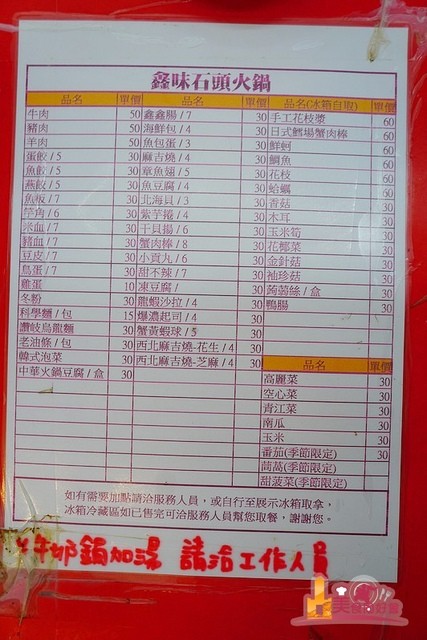 鑫味石頭火鍋
品名 單價 品名 單價 品名(冰箱自取) 單價
牛肉 50 鑫鑫腸 / 7 30 手工花枝漿 60
豬肉 50 海鮮包 / 4 30 日式鱈場蟹肉棒 60
羊肉 50 魚包蛋 / 3 30 鮮蚵 60
蛋餃 / 5 30 麻吉燒 / 4 30 鯛魚 60
魚餃 / 5 30 章魚翅 / 5 30 花枝 60
燕餃 / 5 30 魚豆腐 / 4 30 蛤蠣 60
魚板 / 7 30 北海貝 / 3 30 香菇 30
竽角 / 6 30 紫芋捲 / 4 30 木耳 30
米血 / 7 30 干貝揚 / 6 30 玉米筍 30
豬血 / 7 30 蟹肉棒 / 8 30 花椰菜 30
豆皮 / 7 30 小貢丸 / 6 30 金針菇 30
鳥蛋 / 7 30 甜不辣 / 7 30 袖珍菇 30
雞蛋 10 凍豆腐 / 30 蒟蒻絲 / 盒 30
冬粉 30 龍蝦沙拉 / 4 30 鴨腸 30
科學麵 / 包 15 爆濃起司 / 4 30
讚岐烏龍麵 30 蟹黃蝦球 / 5 30
老油條 / 包 30 西北麻吉燒-花生 / 4 30
韓式泡菜 30 西北麻吉燒-芝麻 / 4 30 品名 單價
中華火鍋豆腐 / 盒 30 高麗菜 30
空心菜 30
青江菜 30
南瓜 30
玉米 30
番茄(季節限定) 30
茼萵(季節限定)
甜菠菜(季節限定)
如有需要加點請洽服務人員，或自行至展示冰箱取拿，
冰箱冷藏區如已售完可洽服務人員幫您取餐，謝謝您。
牛奶鍋加湯 請洽工作人員